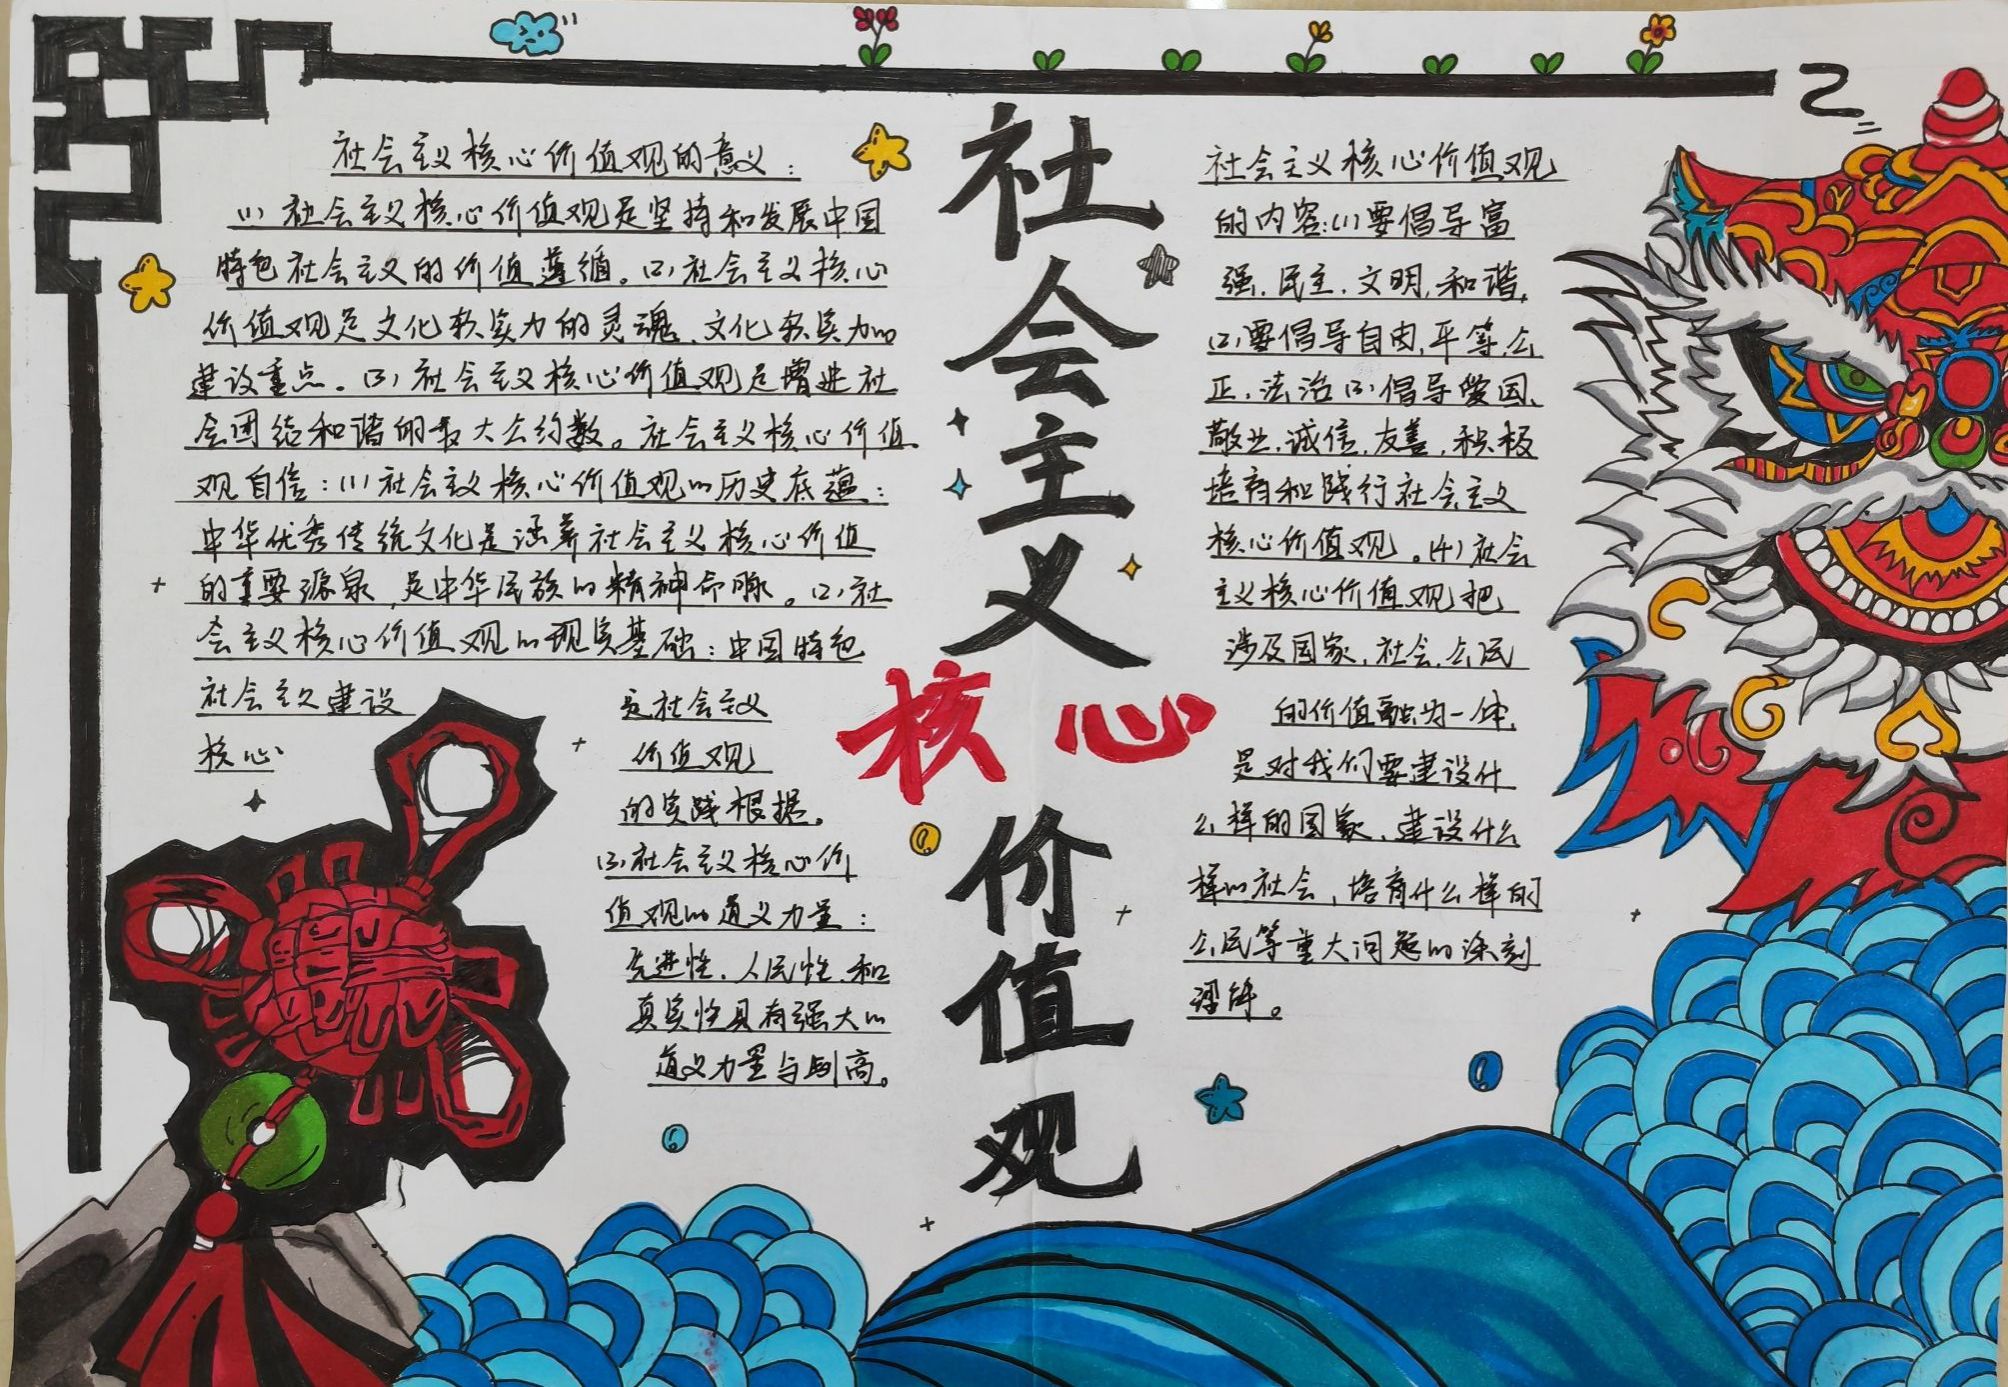 社会主义核心价值观的意义：
(1)社会主义核心价值观是坚持和发展中国
特色社会主义的价值遵循。(2)社会主义核心
价值观是文化软实力的灵魂、文化软实力的
建设重点。(3)社会主义核心价值观是增进社
会团结和谐的最大公约数。社会主义核心价值
观自信：(1)社会主义核心价值观的历史底蕴：
中华优秀传统文化是涵养社会主义核心价值
的重要源泉,是中华民族的精神命脉。(2)社
会主义核心价值观的现实基础：中国特色
社会主义建设 是社会主义
核心 价值观
的实践根据。
(3)社会主义核心价
值观的道义力量：
先进性、人民性、和
真实性具有强大的
道义力量与制高。
社会主义
核心
价值观
社会主义核心价值观
的内容:(1)要倡导富
强、民主、文明,和谐,
(2)要倡导自由,平等,公
正、法治(3)倡导爱国、
敬业、诚信,友善,积极
培育和践行社会主义
核心价值观。(4)社会
主义核心价值观把
涉及国家,社会,公民
的价值融为一体,
是对我们要建设什
么样的国家、建设什么
样的社会,培育什么样的
公民等重大问题的深刻